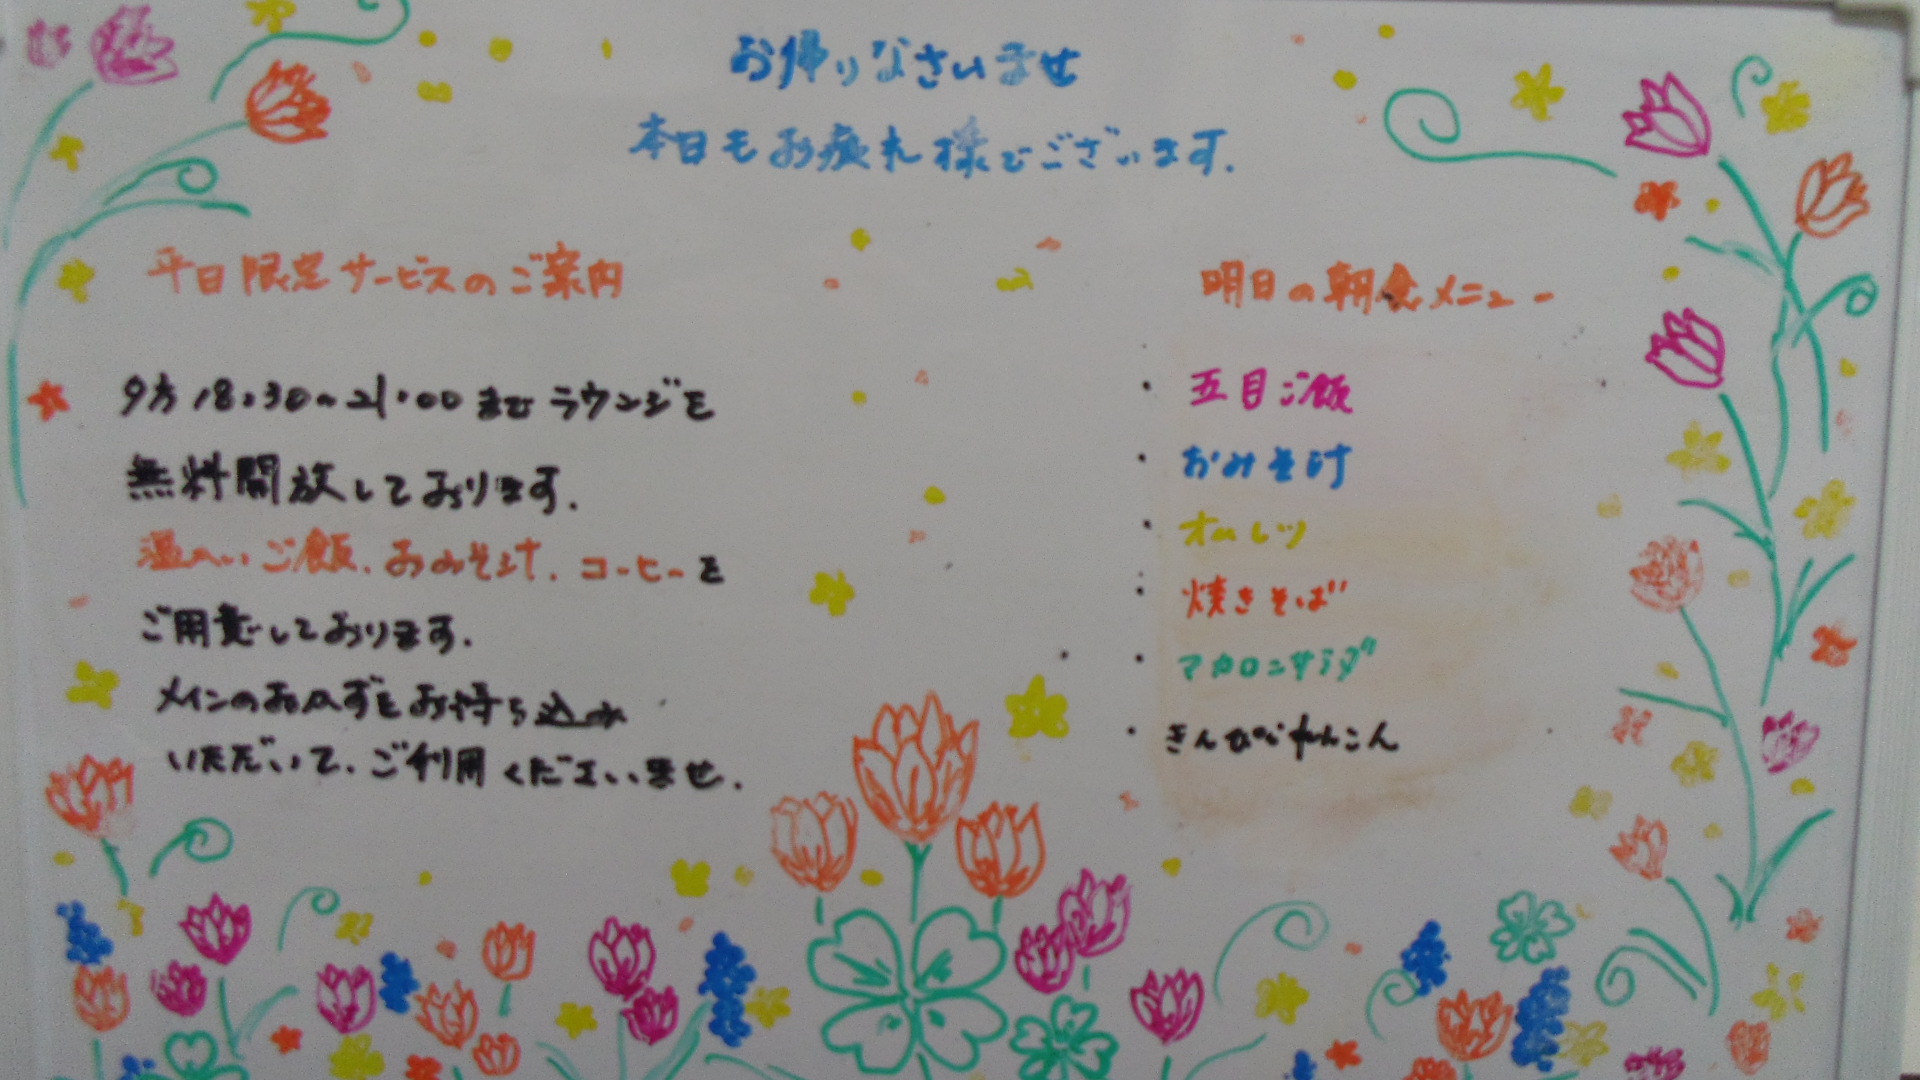 お帰りなさいませ
本日もお疲れ様でございます.
平日限定サービスのご案内
夕方18:30〜21:00までラウンジを
無料開放しております.
温かいご飯、おみそ汁、コーヒーを
ご用意しております.
メインのおかずをお持ち込み
いただいて、ご利用くださいませ.
明日の朝食メニュー
・五目ご飯
・おみそ汁
・オムレツ
・焼きそば
・マカロニサラダ
・きんぴられんこん